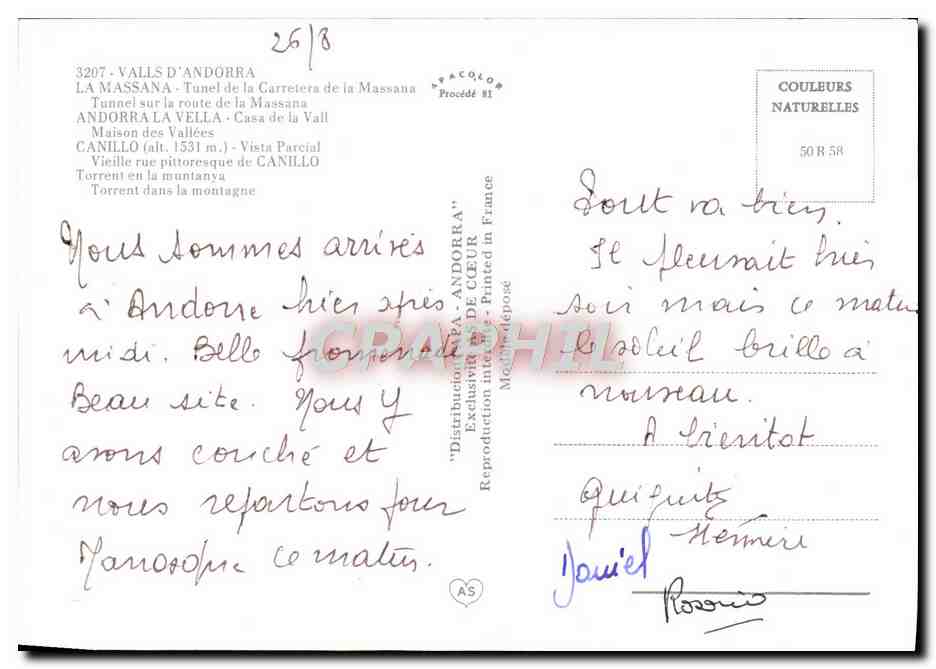 26/8
3207 - VALLS D'ANDORRA
LA MASSANA - Tunel de la Carretera de la Massana
Tunnel sur la route de la Massana
ANDORRA LA VELLA - Casa de la Vall
Maison des Vallées
CANILLO (alt. 1531 m.) - Vista Parcial
Vieille rue pittoresque de CANILLO
Torrent en la muntanya
Torrent dans la montagne
APACOLOR
Procédé 81
COULEURS
NATURELLES
50 R 58
Nous sommes arrivés
à Andorre hier après
midi. Belle promenade
Beau site. Nous y
avons couché et
nous repartons pour
Manosque ce matin.
"Distribucions APA - ANDORRA"
Exclusivités AS DE CŒUR
Reproduction interdite - Printed in France
Modèle déposé
AS
CPAPHIL
Tout va bien.
Il pleuvait hier
soir mais ce matin
le soleil brille à
nouveau.
A bientôt
Daniel
Rosario